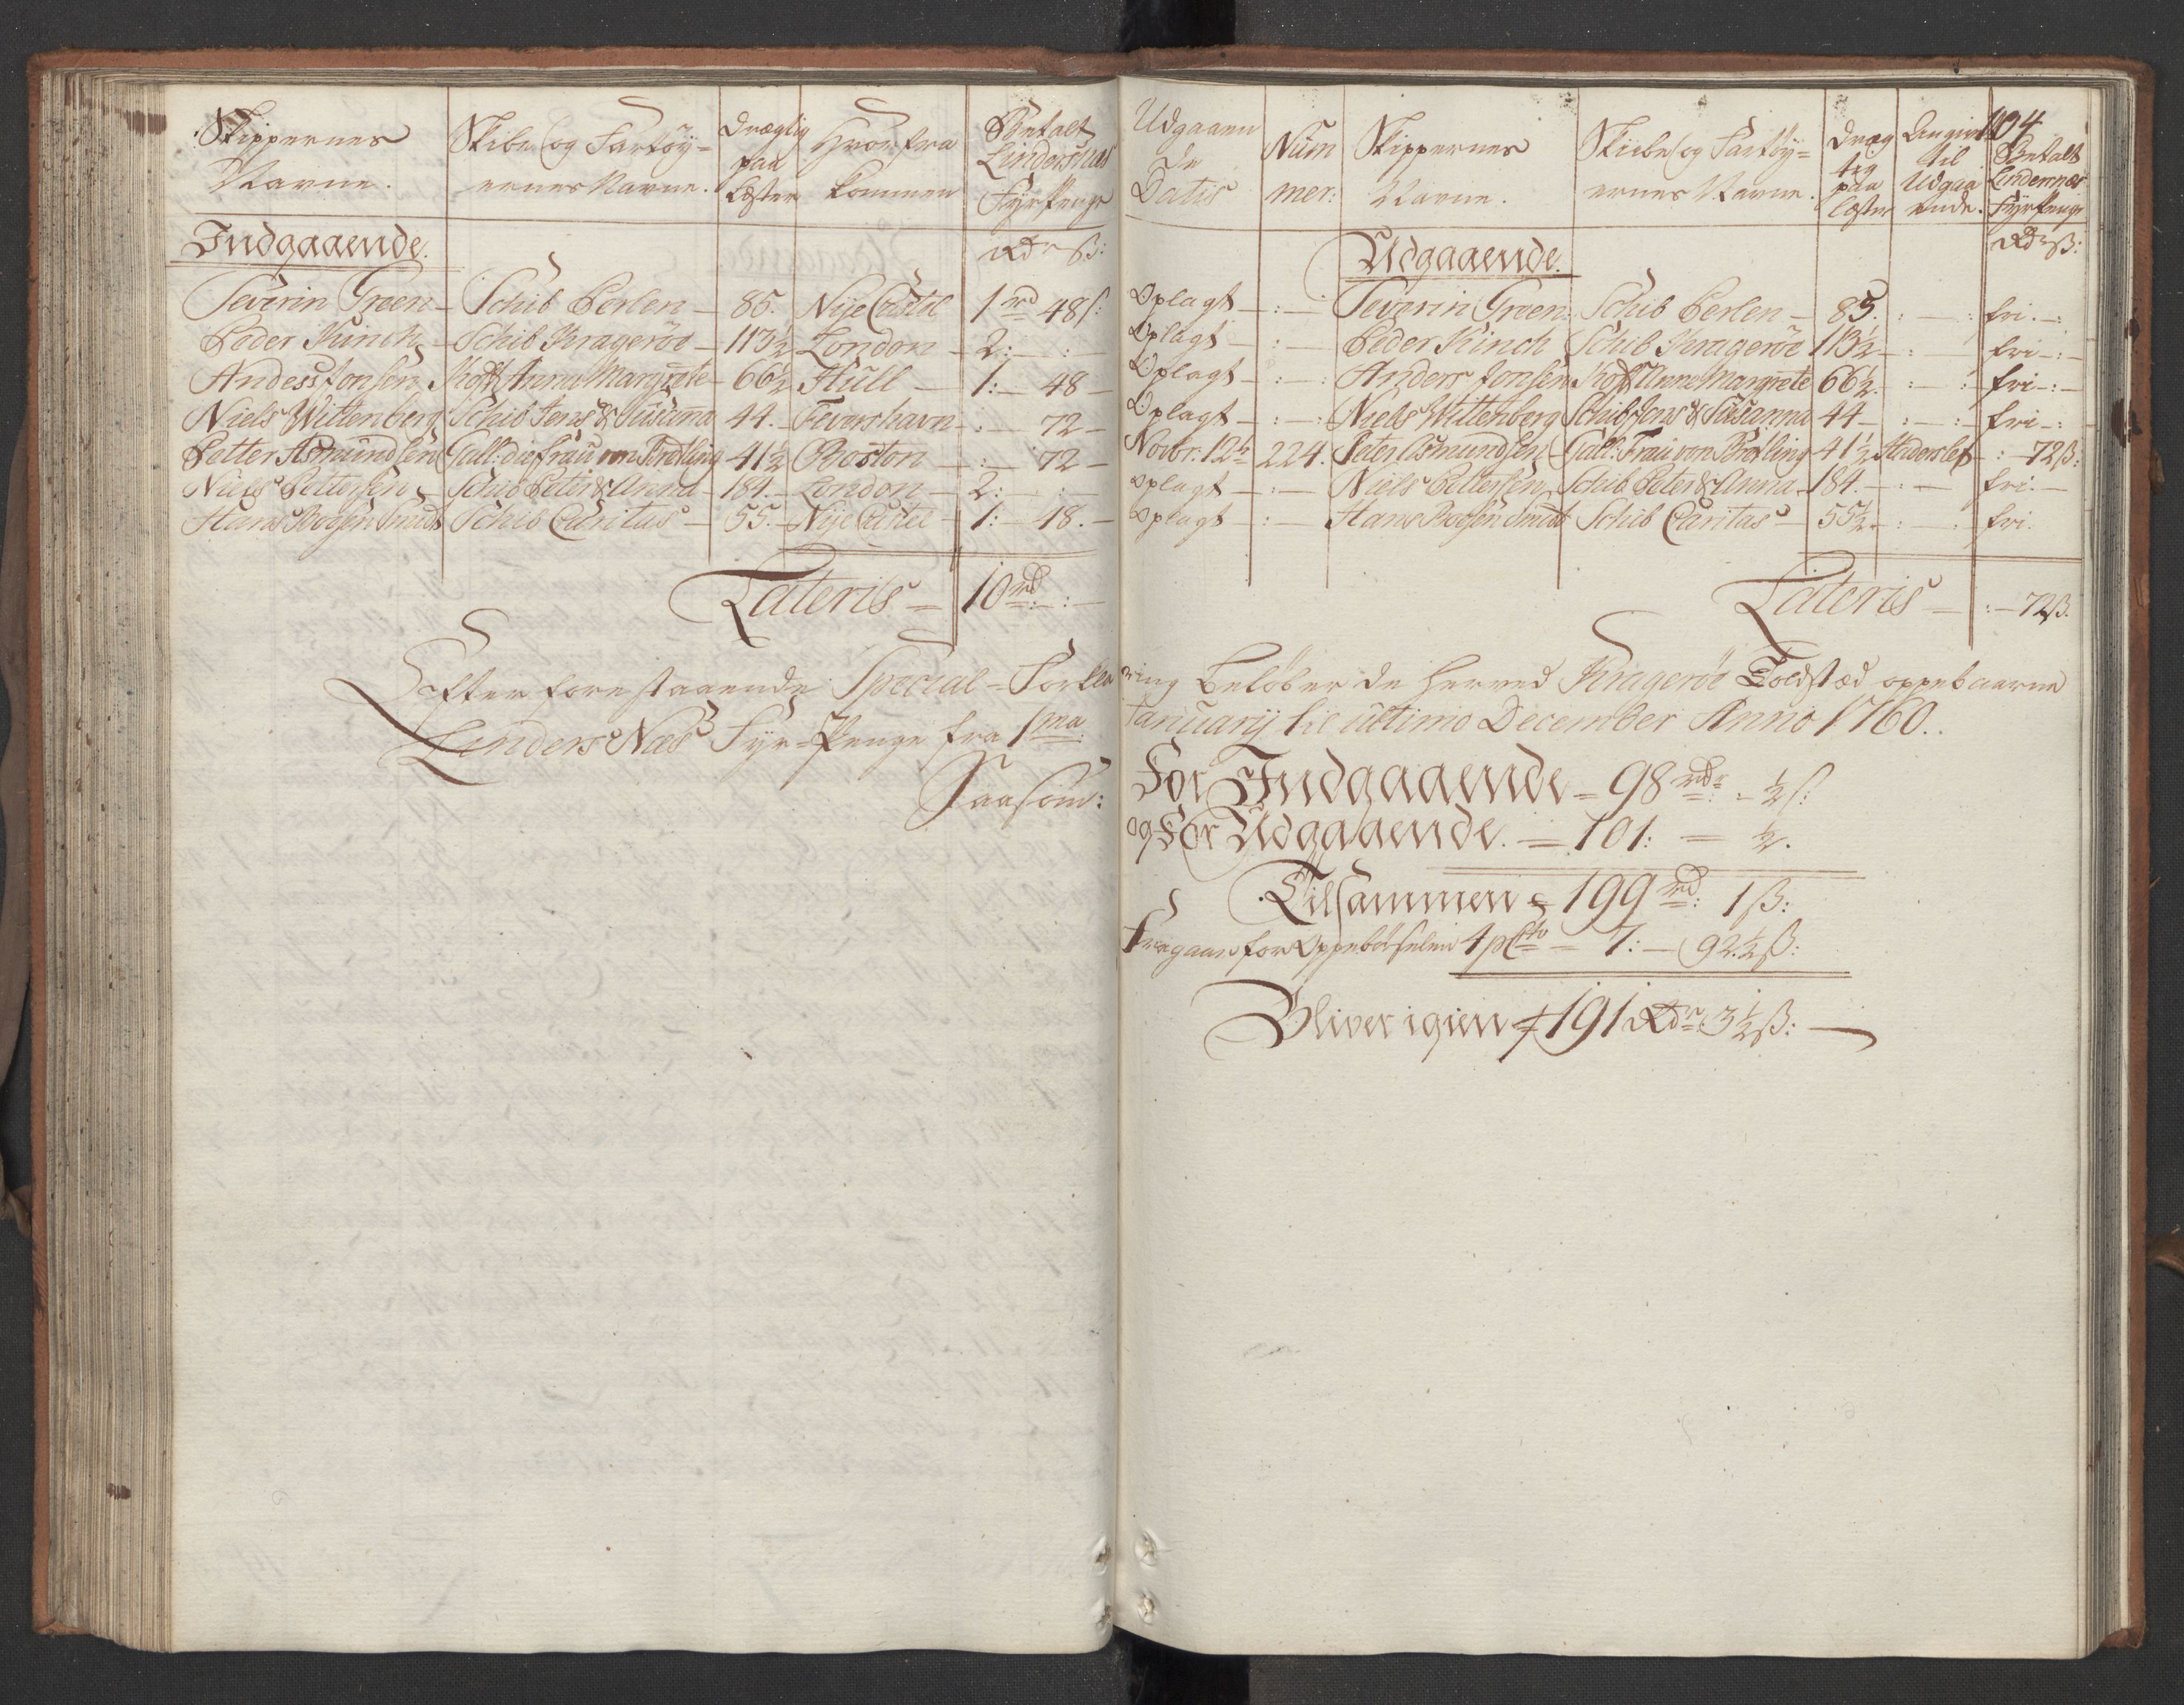 Skippernes Navne. | Skibe og Fartöy=ernes Navne. | Drægtig paa Læster | Hvor fra kommen | Betalt Lindersnæs Fyr Penge
Indgaaende. | Rdr ß:
Severin Green | Schib Perlen | 85. | Nije Castel | 1 rd 48 ß:
Peder Kinch | Schib Krageröe | 113½ | London | 2: — : —
Anders Jonsen | Hoff Anna Margrete | 66½ | Hull | 1: — 48 —
Niels Wittenberg | Schib Jens & Susanna | 44. | Fevershavn | : — 72 —
Petter Asmundsen | Gall: die Frau von Bredling | 41½ | Boston | : — 72 —
Niels Pettersen | Schib Peter & Anna | 184. | London | 2: — : —
Hans Boysen Smidt | Schib Caritas | 55. | Nije Castel | 1: — 48. —
Lateris = 10 rd : — : —
Efter forestaaende Special = Forkla
Linders Næs Fyr = Penge fra 1ma
Saasom:
104
Udgaaende Datis | Nummer: | Skippernes Navne. | Skibe og Fartöy=ernes Navne. | Drægtig paa Læster | Angivet til Udgaaende. | Betalt Lindernæs Fyr Penge
Udgaaende. | Rdr ß:
Oplagt — : — Severin Green | Schib Perlen — | 85. | : — : | fri. — :
Oplagt — : — Peder Kinch | Schib Krageröe | 113½ — | : — | fri — : —
Oplagt — : — Anders Jonsen | Hoff Anna Margrete | 66½. | : — : | fri — : —
Oplagt — : — Niels Wittenberg | Schib Jens & Susanna | 44 — | : — : | fri — :
Novbr: 12te | 224. | Peter Asmundsen | Gall: Frau von Brēdling | 41½ | Haderslef | : — 72 ß:
oplagt — : — Niels Pettersen | Schib Peter & Anna | 184. — | : — | fri. —
oplagt — : — Hans Boysen Smidt | Schib Caritas | 55½. — | : — : | fri.
Lateris — : — 72 ß.
ring Belöber de herved Krageröe Toldstæd oppebaarne
January til ultimo December Anno 1760.
For Indgaaende = 98 rdr: - ½ ß:
og For Udgaaende. = 101: — ½.
Tilsammen = 199 rd: 1 ß:
Fragaar for Oppebörselen 4 pCto = 7: — 92½ ß:
Bliver igien 191 Rdr 3½ ß: —